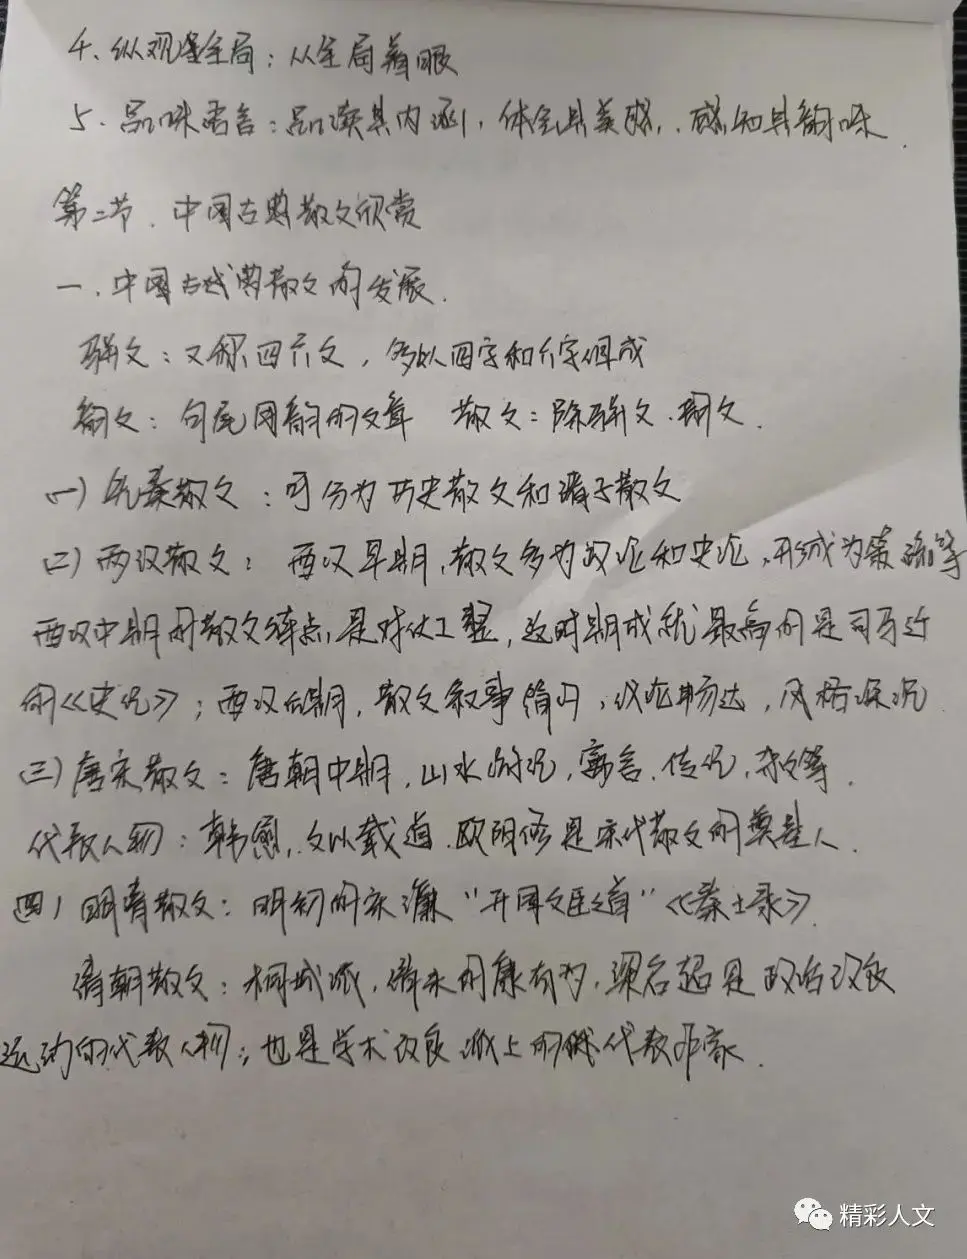 4、纵观全局：从全局着眼
5、品味语言：品读其内涵，体会其美感，感知其韵味.
第二节.中国古典散文欣赏
一.中国古典散文的发展.
骈文：又称四六文，多以四字和六字组成
韵文：句尾用韵的文章 散文：除骈文、韵文.
(一)先秦散文：可分为历史散文和诸子散文
(二)两汉散文：西汉早期，散文多为政论和史论，形成为策疏等
西汉中期的散文特点是对仗工整，这时期成就最高的是司马迁
的《史记》；西汉后期，散文叙事简明，议论畅达，风格深沉
(三)唐宋散文：唐朝中期，山水游记，寓言、传记，杂文等.
代表人物：韩愈，文以载道.欧阳修是宋代散文的奠基人.
(四)明清散文：明初的宋濂“开国文臣之首”《秦士录》
清朝散文：桐城派，清末的康有为，梁启超是政治改良
运动的代表人物；也是学术改良派上的代表作家.
精彩人文